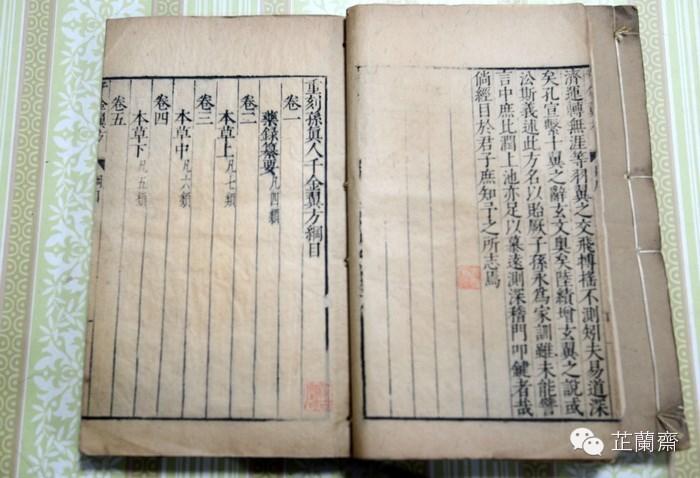 濟運轉無涯等羽翼之交飛搏搖不測矧夫易道深
矣孔宣繫十翼之辭玄文奧矣陸績增玄翼之說或
沿斯義述此方名以貽厥子孫永爲家訓雖未能譬
言中庶比潤上池亦足以慕遠測深稽門叩鍵者哉
倘經目於君子庶知予之所志焉
重刻孫眞人千金翼方綱目
卷一
藥錄纂要凡四類
卷二
本草上凡七類
卷三
本草中凡六類
卷四
本草下凡五類
卷五
千金翼方 綱目
芷蘭齋